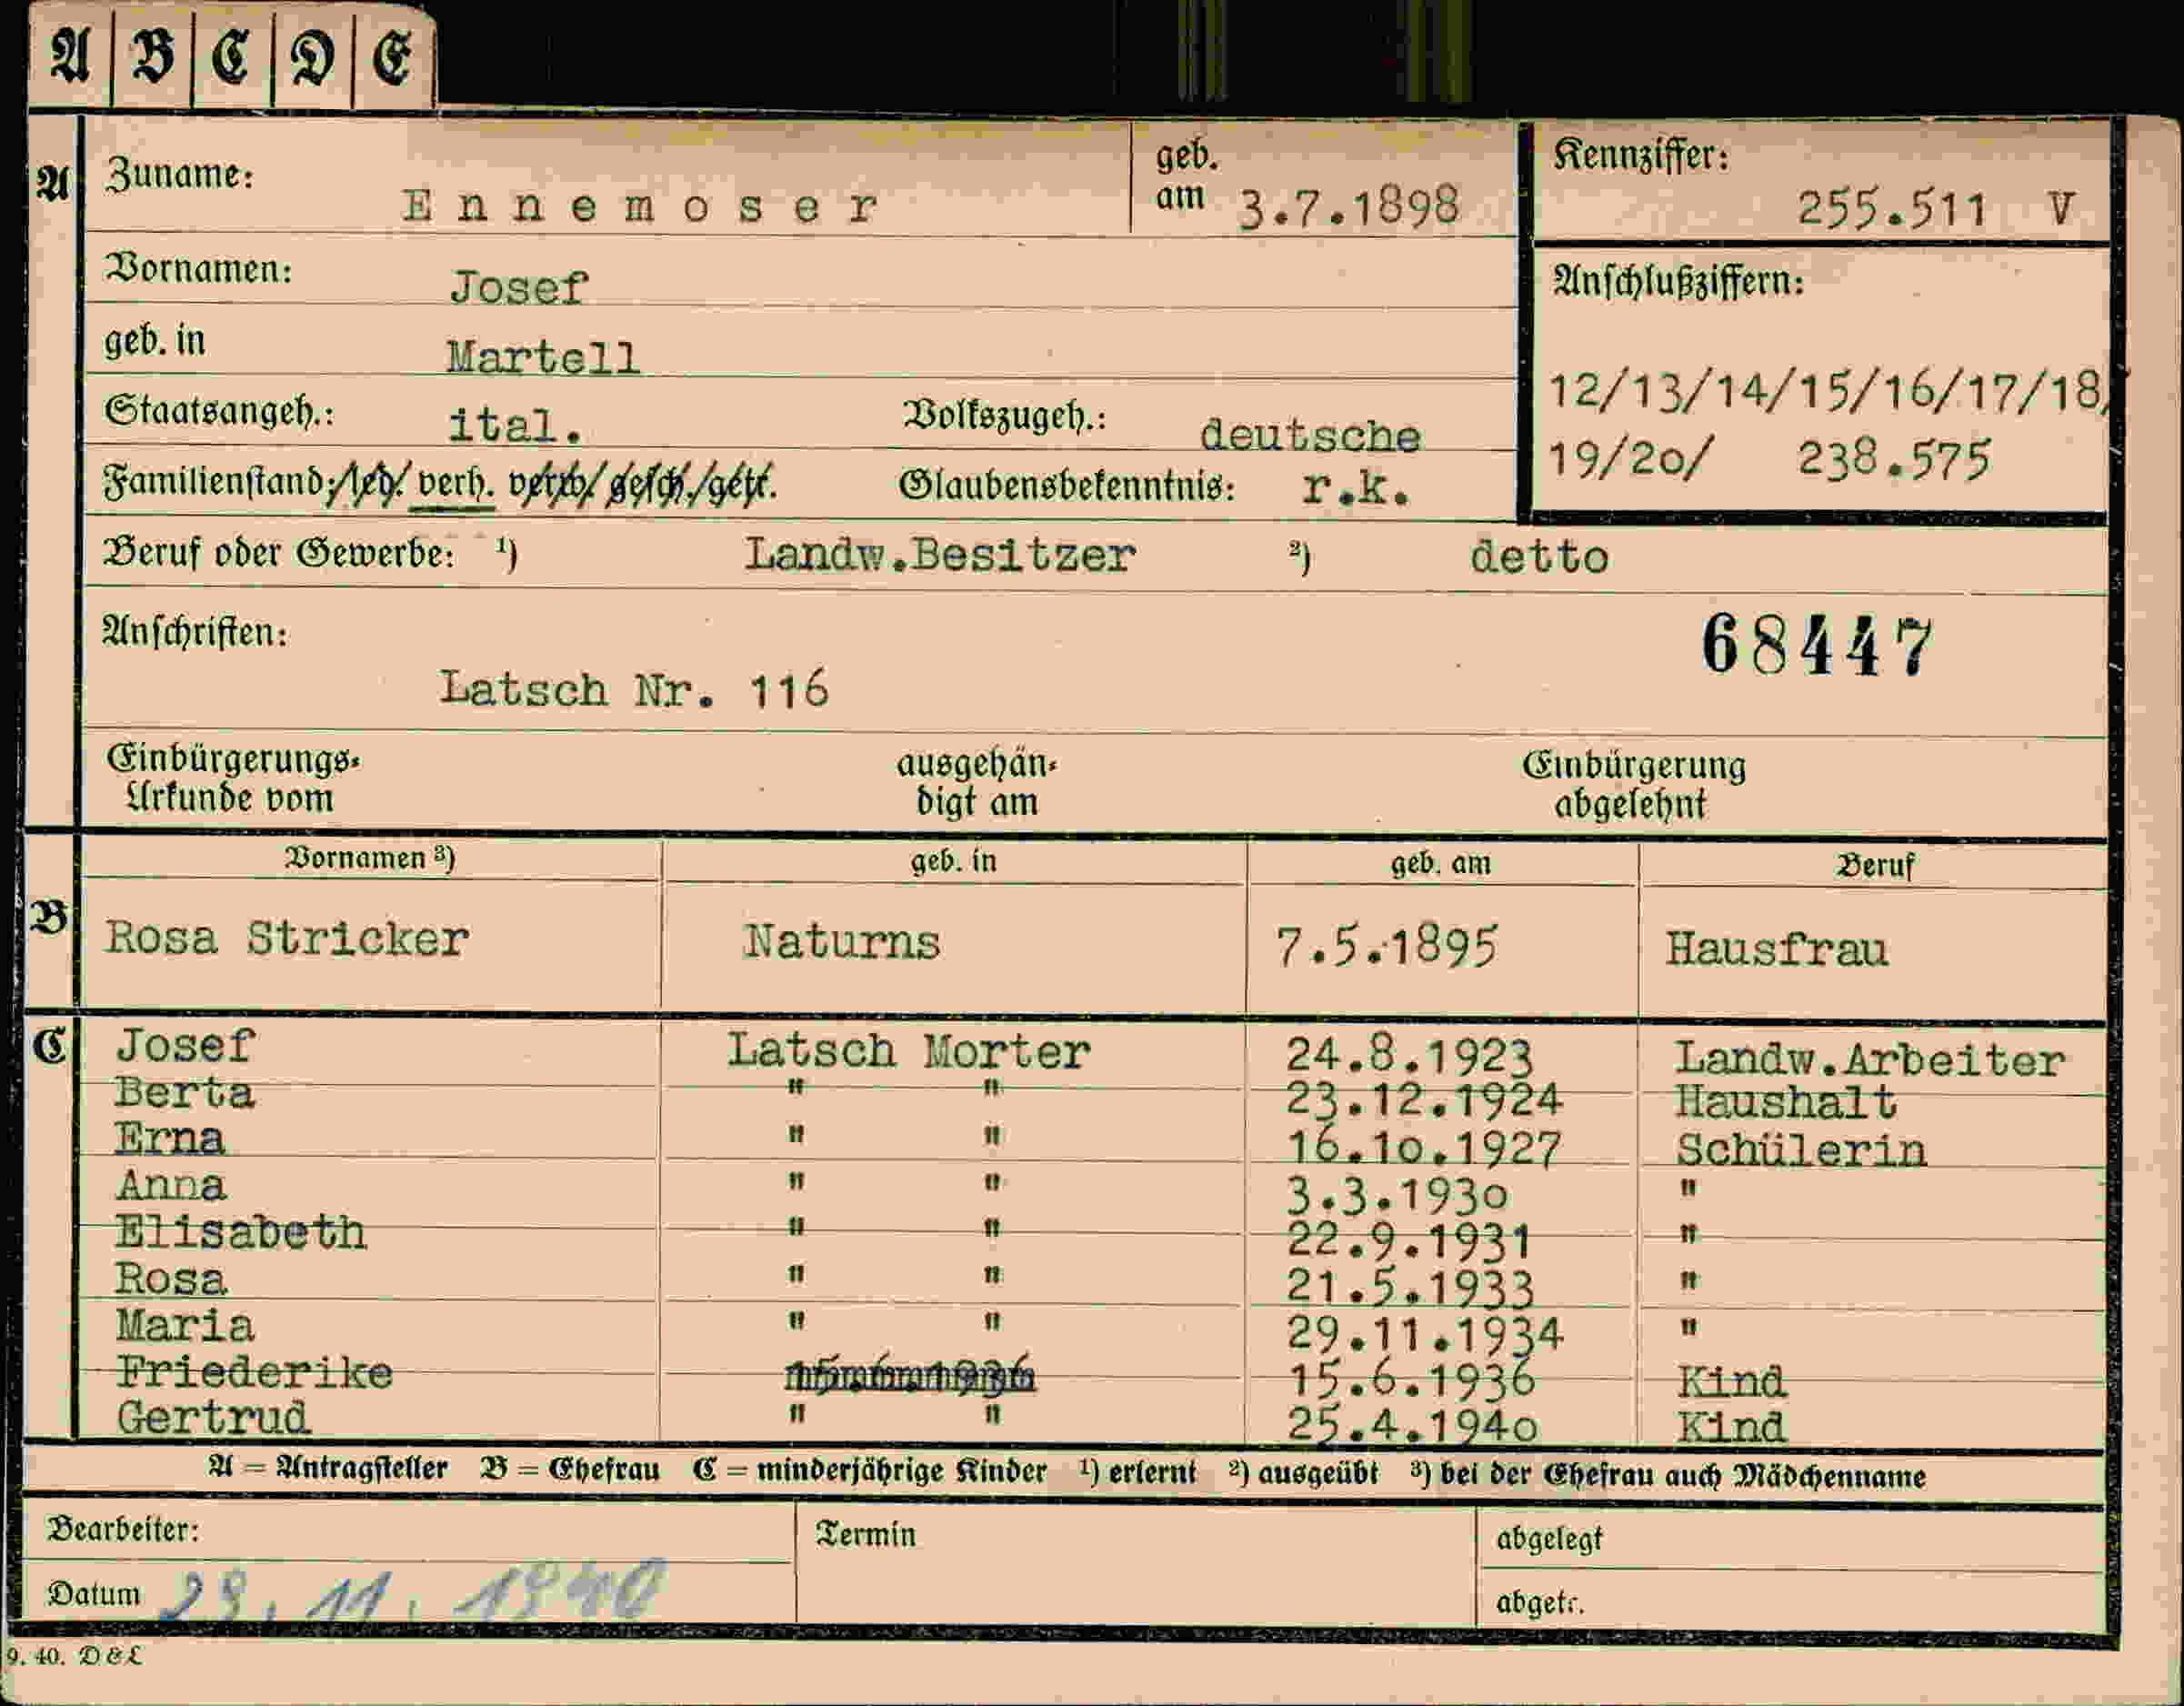 A B C D E
A Zuname: Ennemoser geb. am 3.7.1898 Kennziffer: 255.511 V
Vornamen: Josef Anschlußziffern:
geb. in Martell 12/13/14/15/16/17/18/
Staatsangeh.: ital. Volkszugeh.: deutsche 19/20/ 238.575
Familienstand: led. verh. verw. gesch. getr. Glaubensbekenntnis: r.k.
Beruf oder Gewerbe: ¹) Landw.Besitzer ²) detto
Anschriften: 68447
Latsch Nr. 116
Einbürgerungs- ausgehän- Einbürgerung
Urkunde vom digt am abgelehnt
Vornamen ³) geb. in geb. am Beruf
B Rosa Stricker Naturns 7.5.1895 Hausfrau
C Josef Latsch Morter 24.8.1923 Landw.Arbeiter
Berta " " 23.12.1924 Haushalt
Erna " " 16.10.1927 Schülerin
Anna " " 3.3.1930 "
Elisabeth " " 22.9.1931 "
Rosa " " 21.5.1933 "
Maria " " 29.11.1934 "
Friederike 15.6.1936 Kind
Gertrud " " 25.4.1940 Kind
A = Antragsteller B = Ehefrau C = minderjährige Kinder ¹) erlernt ²) ausgeübt ³) bei der Ehefrau auch Mädchenname
Bearbeiter: Termin abgelegt
Datum 11. 1940 abgetr.
9. 40. D & L